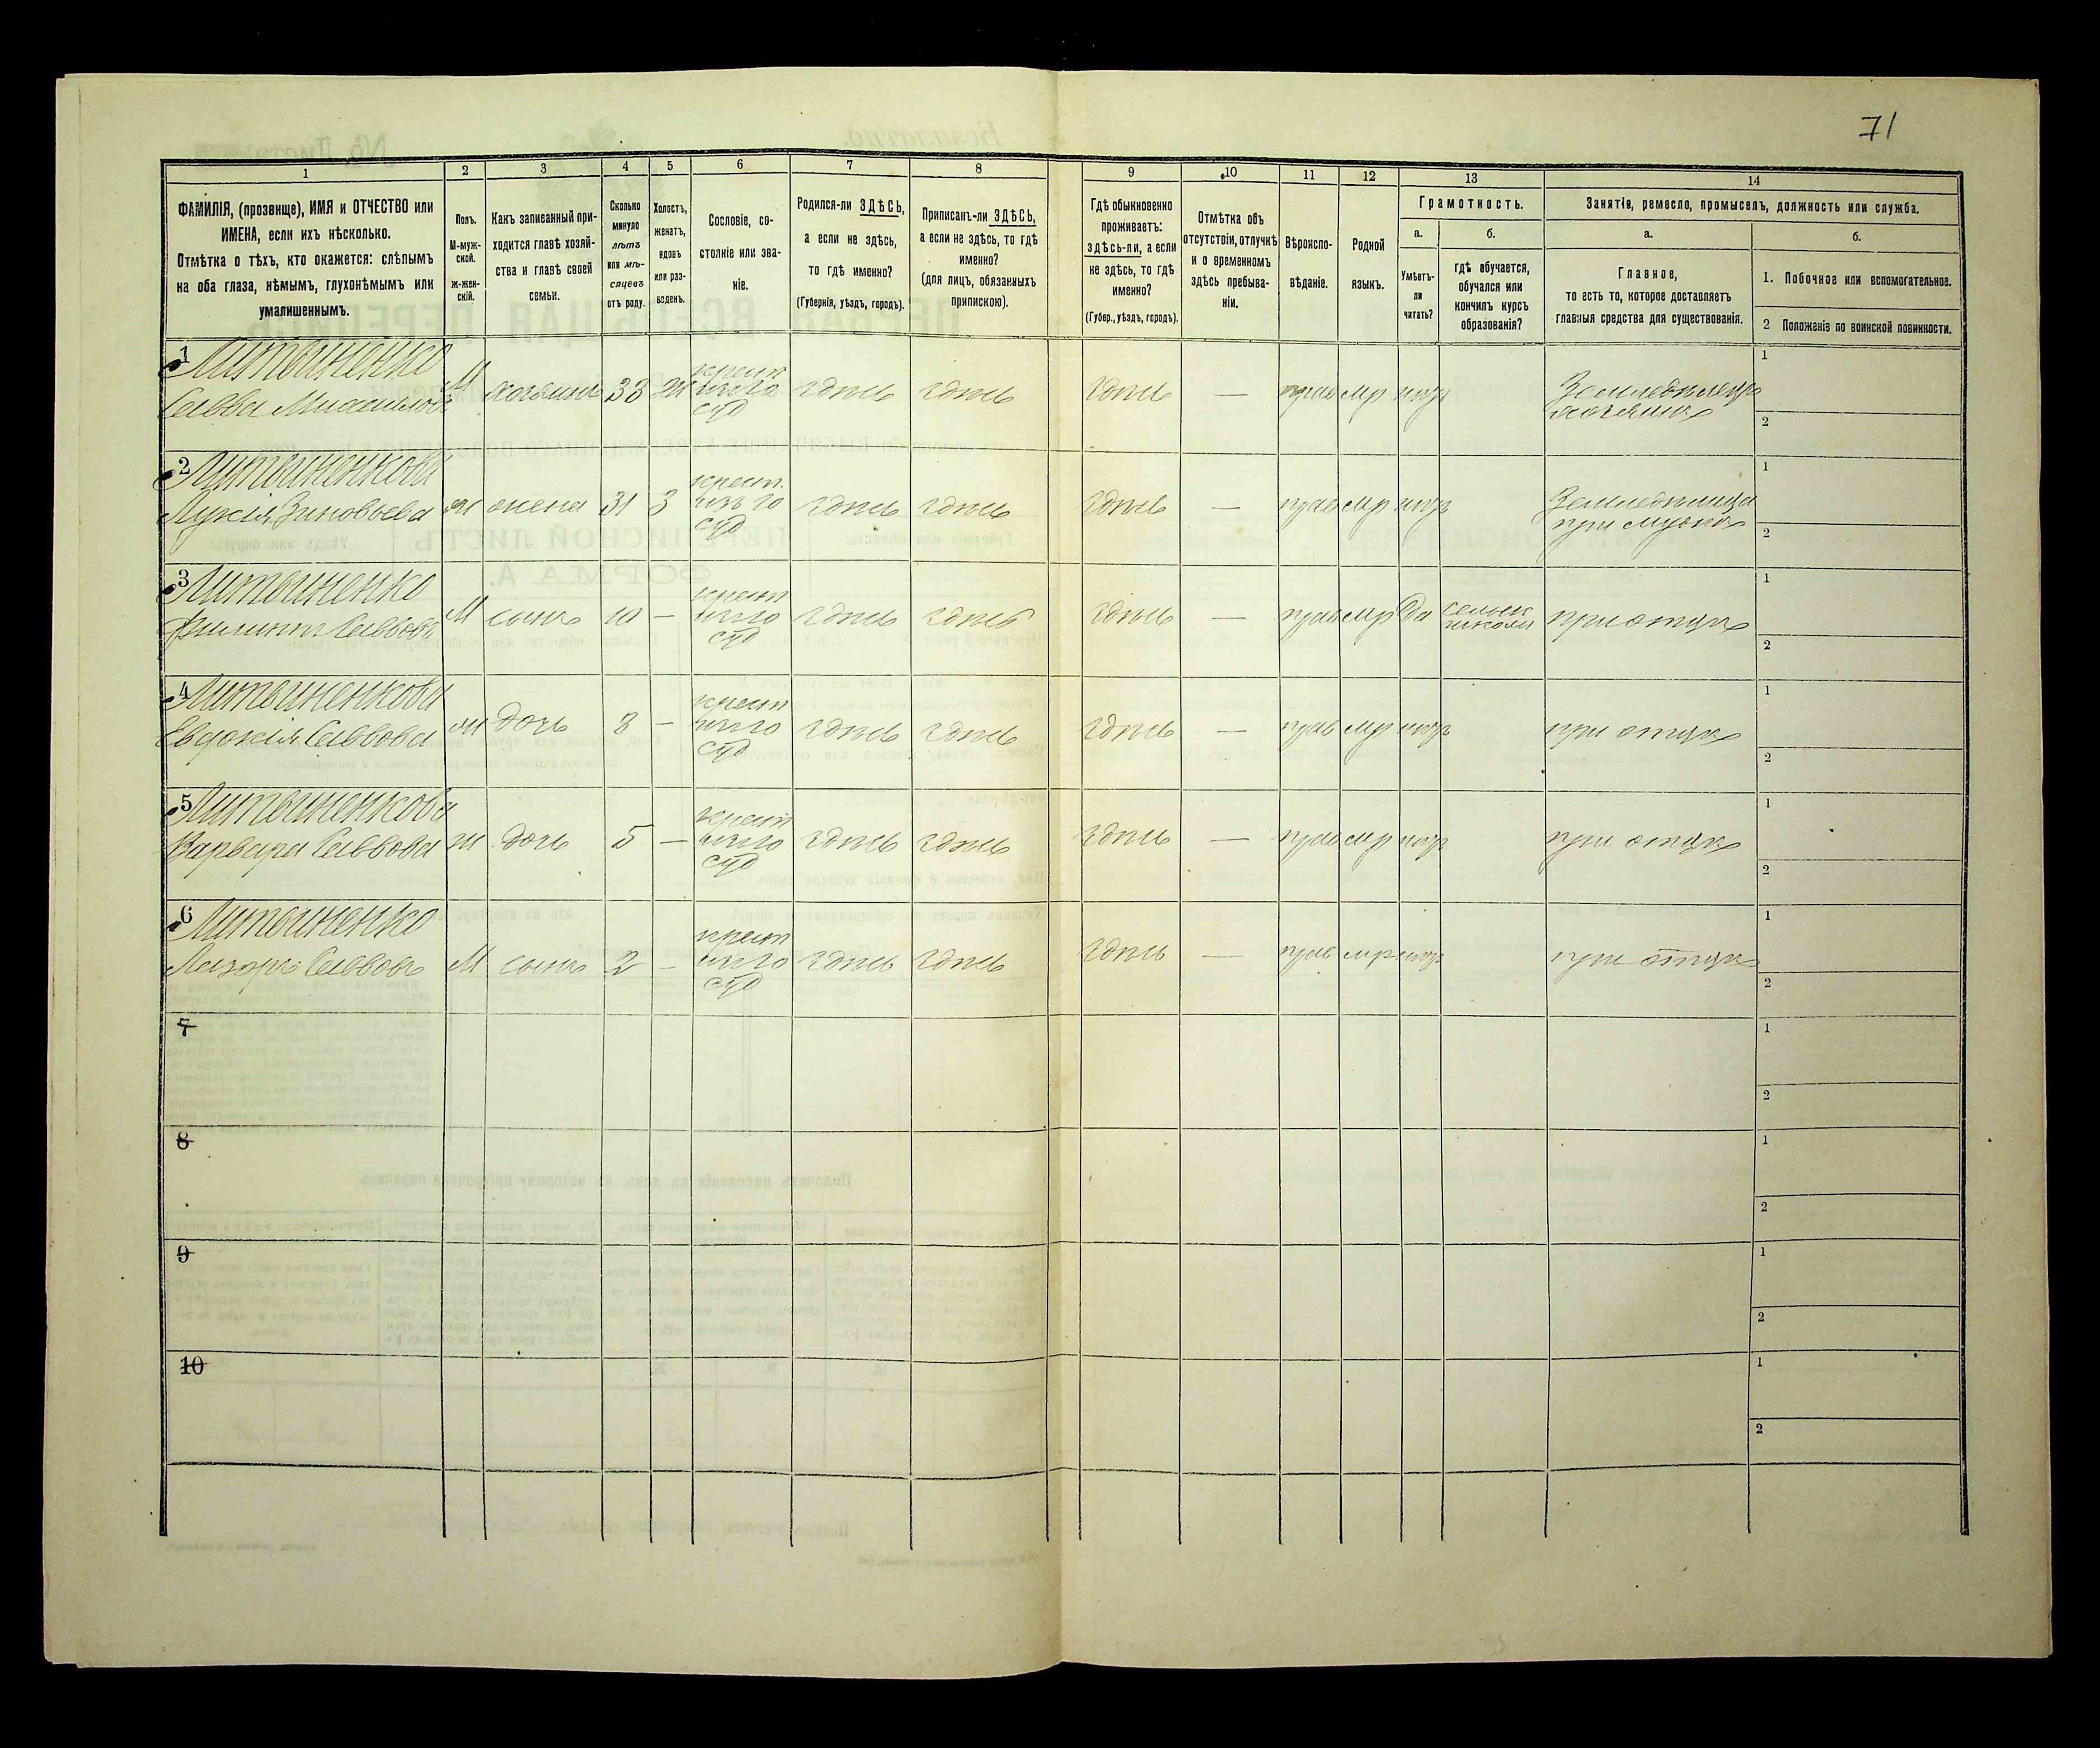 71
1 2 3 4 5 6 7 8 9 10 11 12 13 14
ФАМИЛІЯ, (прозвище), ИМЯ и ОТЧЕСТВО или
ИМЕНА, если ихъ нѣсколько.
Отмѣтка о тѣхъ, кто окажется: слѣпымъ
на оба глаза, нѣмымъ, глухонѣмымъ или
умалишеннымъ.
Полъ.
М-муж-
ской.
Ж-жен-
скій.
Какъ записанный при-
ходится главѣ хозяй-
ства и главѣ своей
семьи.
Сколько
минуло
лѣтъ
или мѣ-
сяцевъ
отъ роду.
Холостъ,
женатъ,
вдовъ
или раз-
веденъ.
Сословіе, со-
стояніе или зва-
ніе.
Родился-ли ЗДѢСЬ,
а если не здѣсь,
то гдѣ именно?
(Губернія, уѣздъ, городъ).
Приписанъ-ли ЗДѢСЬ,
а если не здѣсь, то гдѣ
именно?
(для лицъ, обязанныхъ
припискою).
Гдѣ обыкновенно
проживаетъ:
здѣсь-ли, а если
не здѣсь, то гдѣ
именно?
(Губер., уѣздъ, городъ).
Отмѣтка объ
отсутствіи, отлучкѣ
и о временномъ
здѣсь пребыва-
ніи.
Вѣроиспо-
вѣданіе.
Родной
языкъ.
Грамотность.
а.
Умѣетъ-
ли
читать?
б.
гдѣ обучается,
обучался или
кончилъ курсъ
образованія?
Занятіе, ремесло, промыселъ, должность или служба.
а.
Главное,
то есть то, которое доставляетъ
главныя средства для существованія.
б.
1. Побочное или вспомогательное.
2 Положеніе по воинской повинности.
1 Литвиненко
Савва Михайловъ М хозяинъ 33 ж крест здѣсь здѣсь здѣсь — прав мр нѣтъ Земледѣлецъ
хозяинъ
1
2
2 Литвиненкова
Лукія Зиновьева ж жена 31 З крест. здѣсь здѣсь здѣсь — прав мр нѣтъ
при мужѣ
1
2
3 Литвиненко
Филиппъ Саввовъ М сынъ 10 — крест здѣсь здѣсь здѣсь — прав мр да сельск
школѣ при отцѣ
1
2
4 Литвиненкова
Евдокія Саввова ж дочь 8 — крест здѣсь здѣсь здѣсь — прав мр нѣтъ при отцѣ
1
2
5 Литвиненкова
Варвара Саввова ж дочь 5 — крест здѣсь здѣсь здѣсь — прав мр нѣтъ при отцѣ
1
2
6 Литвиненко
Лазарь Саввовъ М сынъ 2 — крест здѣсь здѣсь здѣсь — прав мр нѣтъ при отцѣ
1
2
7
1
2
8
1
2
9
1
2
10
1
2